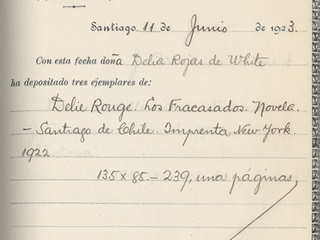 Santiago, 11 de Junio de 1923.
Con esta fecha doña Delia Rojas de White
ha depositado tres ejemplares de:
Delie Rouge. Los Fracasados. Novela.
- Santiago de Chile. Imprenta New York.
1922
135 x 85. - 239, una páginas.